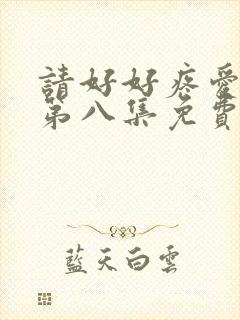 請好好疼愛
第八集免費
藍天白雲